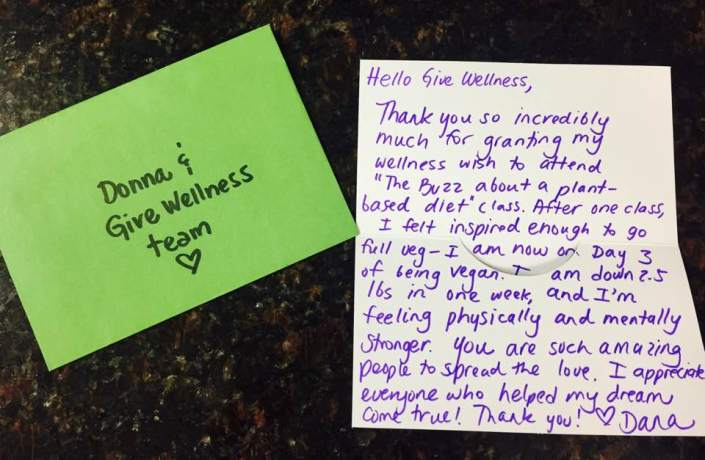 Donna &
Give Wellness
team
♡
Hello Give Wellness,
Thank you so incredibly
much for granting my
wellness wish to attend
"The Buzz about a plant-
based diet" class. After one class,
I felt inspired enough to go
full veg - I am now on Day 3
of being vegan. I am down 2.5
lbs in one week, and I'm
feeling physically and mentally
stronger. You are such amazing
people to spread the love. I appreciate
everyone who helped my dream
come true! Thank you! ♡ Dana